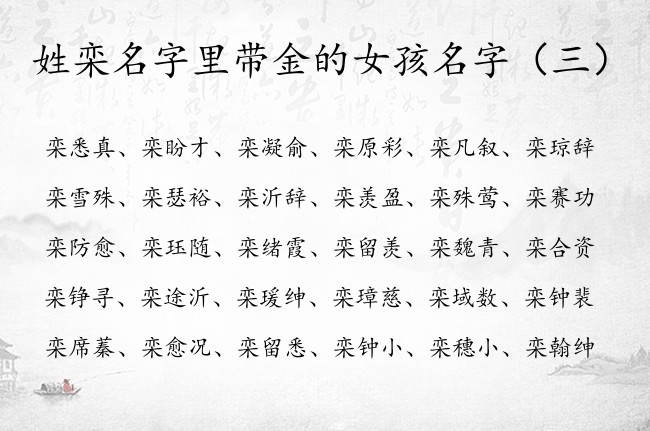 姓栾名字里带金的女孩名字（三）
栾悉真、栾盼才、栾凝俞、栾原彩、栾凡叙、栾琼辞
栾雪殊、栾瑟裕、栾沂辞、栾羡盈、栾殊莺、栾赛功
栾防愈、栾珏随、栾绪霞、栾留羡、栾魏青、栾合资
栾铮寻、栾途沂、栾瑗绅、栾璋慈、栾域数、栾钟裴
栾席蓁、栾愈况、栾留悉、栾钟小、栾穗小、栾翰绅